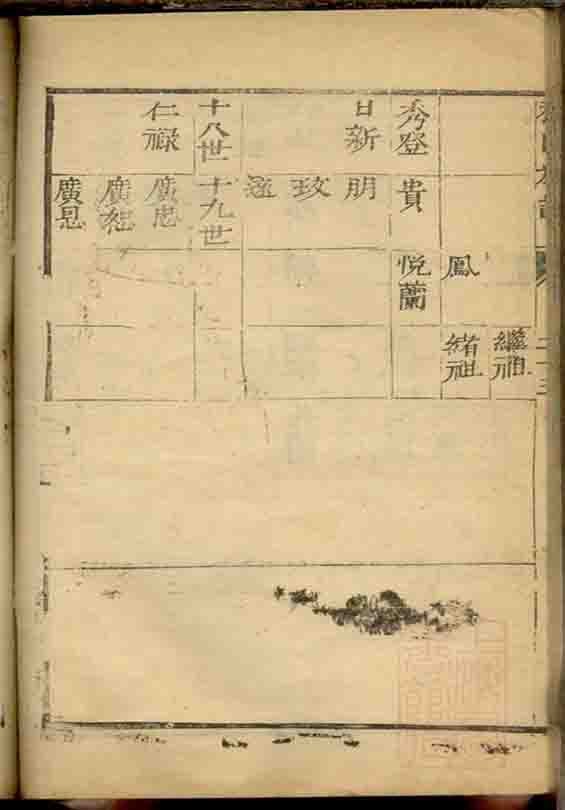 繼祖
鳳
緒祖
秀登
貴
悅蘭
日新
明
玟
遜
十八世
十九世
仁祿
廣忠
廣紀
廣恩